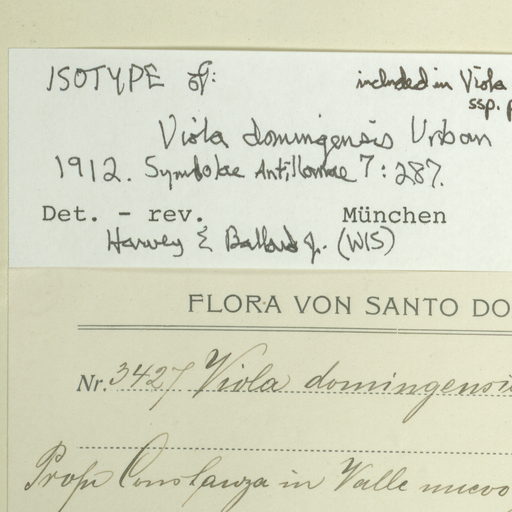 ISOTYPE of: included in Viola
ssp. p
Viola domingensis Urban
1912. Symbolae Antillanae 7: 287.
Det. - rev. München
Harvey E Ballard Jr. (WIS)
FLORA VON SANTO DO
Nr. 3427 Viola domingensis
Prope Constanza in Valle nuevo